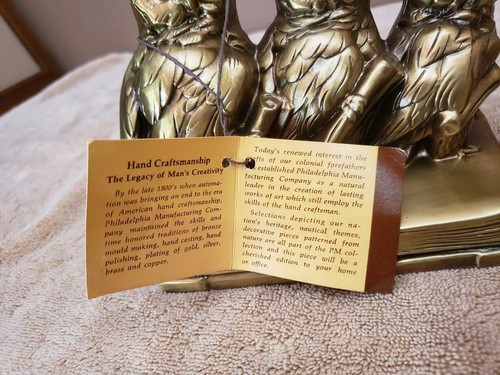 Hand Craftsmanship
The Legacy of Man's Creativity
By the late 1800's when automa-
tion was bringing an end to the era
of American hand craftsmanship,
Philadelphia Manufacturing Com-
pany maintained the skills and
time honored traditions of bronze
mould making, hand casting, hand
polishing, plating of gold, silver,
brass and copper.
Today's renewed interest in the
of our colonial forefathers
established Philadelphia Manu-
facturing Company as a natural
leader in the creation of lasting
works of art which still employ the
skills of the hand craftsman.
Selections depicting our na-
tian's heritage, nautical themes,
decorative pieces patterned from
nature are all part of the PM col-
lection and this piece will be a
cherished edition to your home
or office.